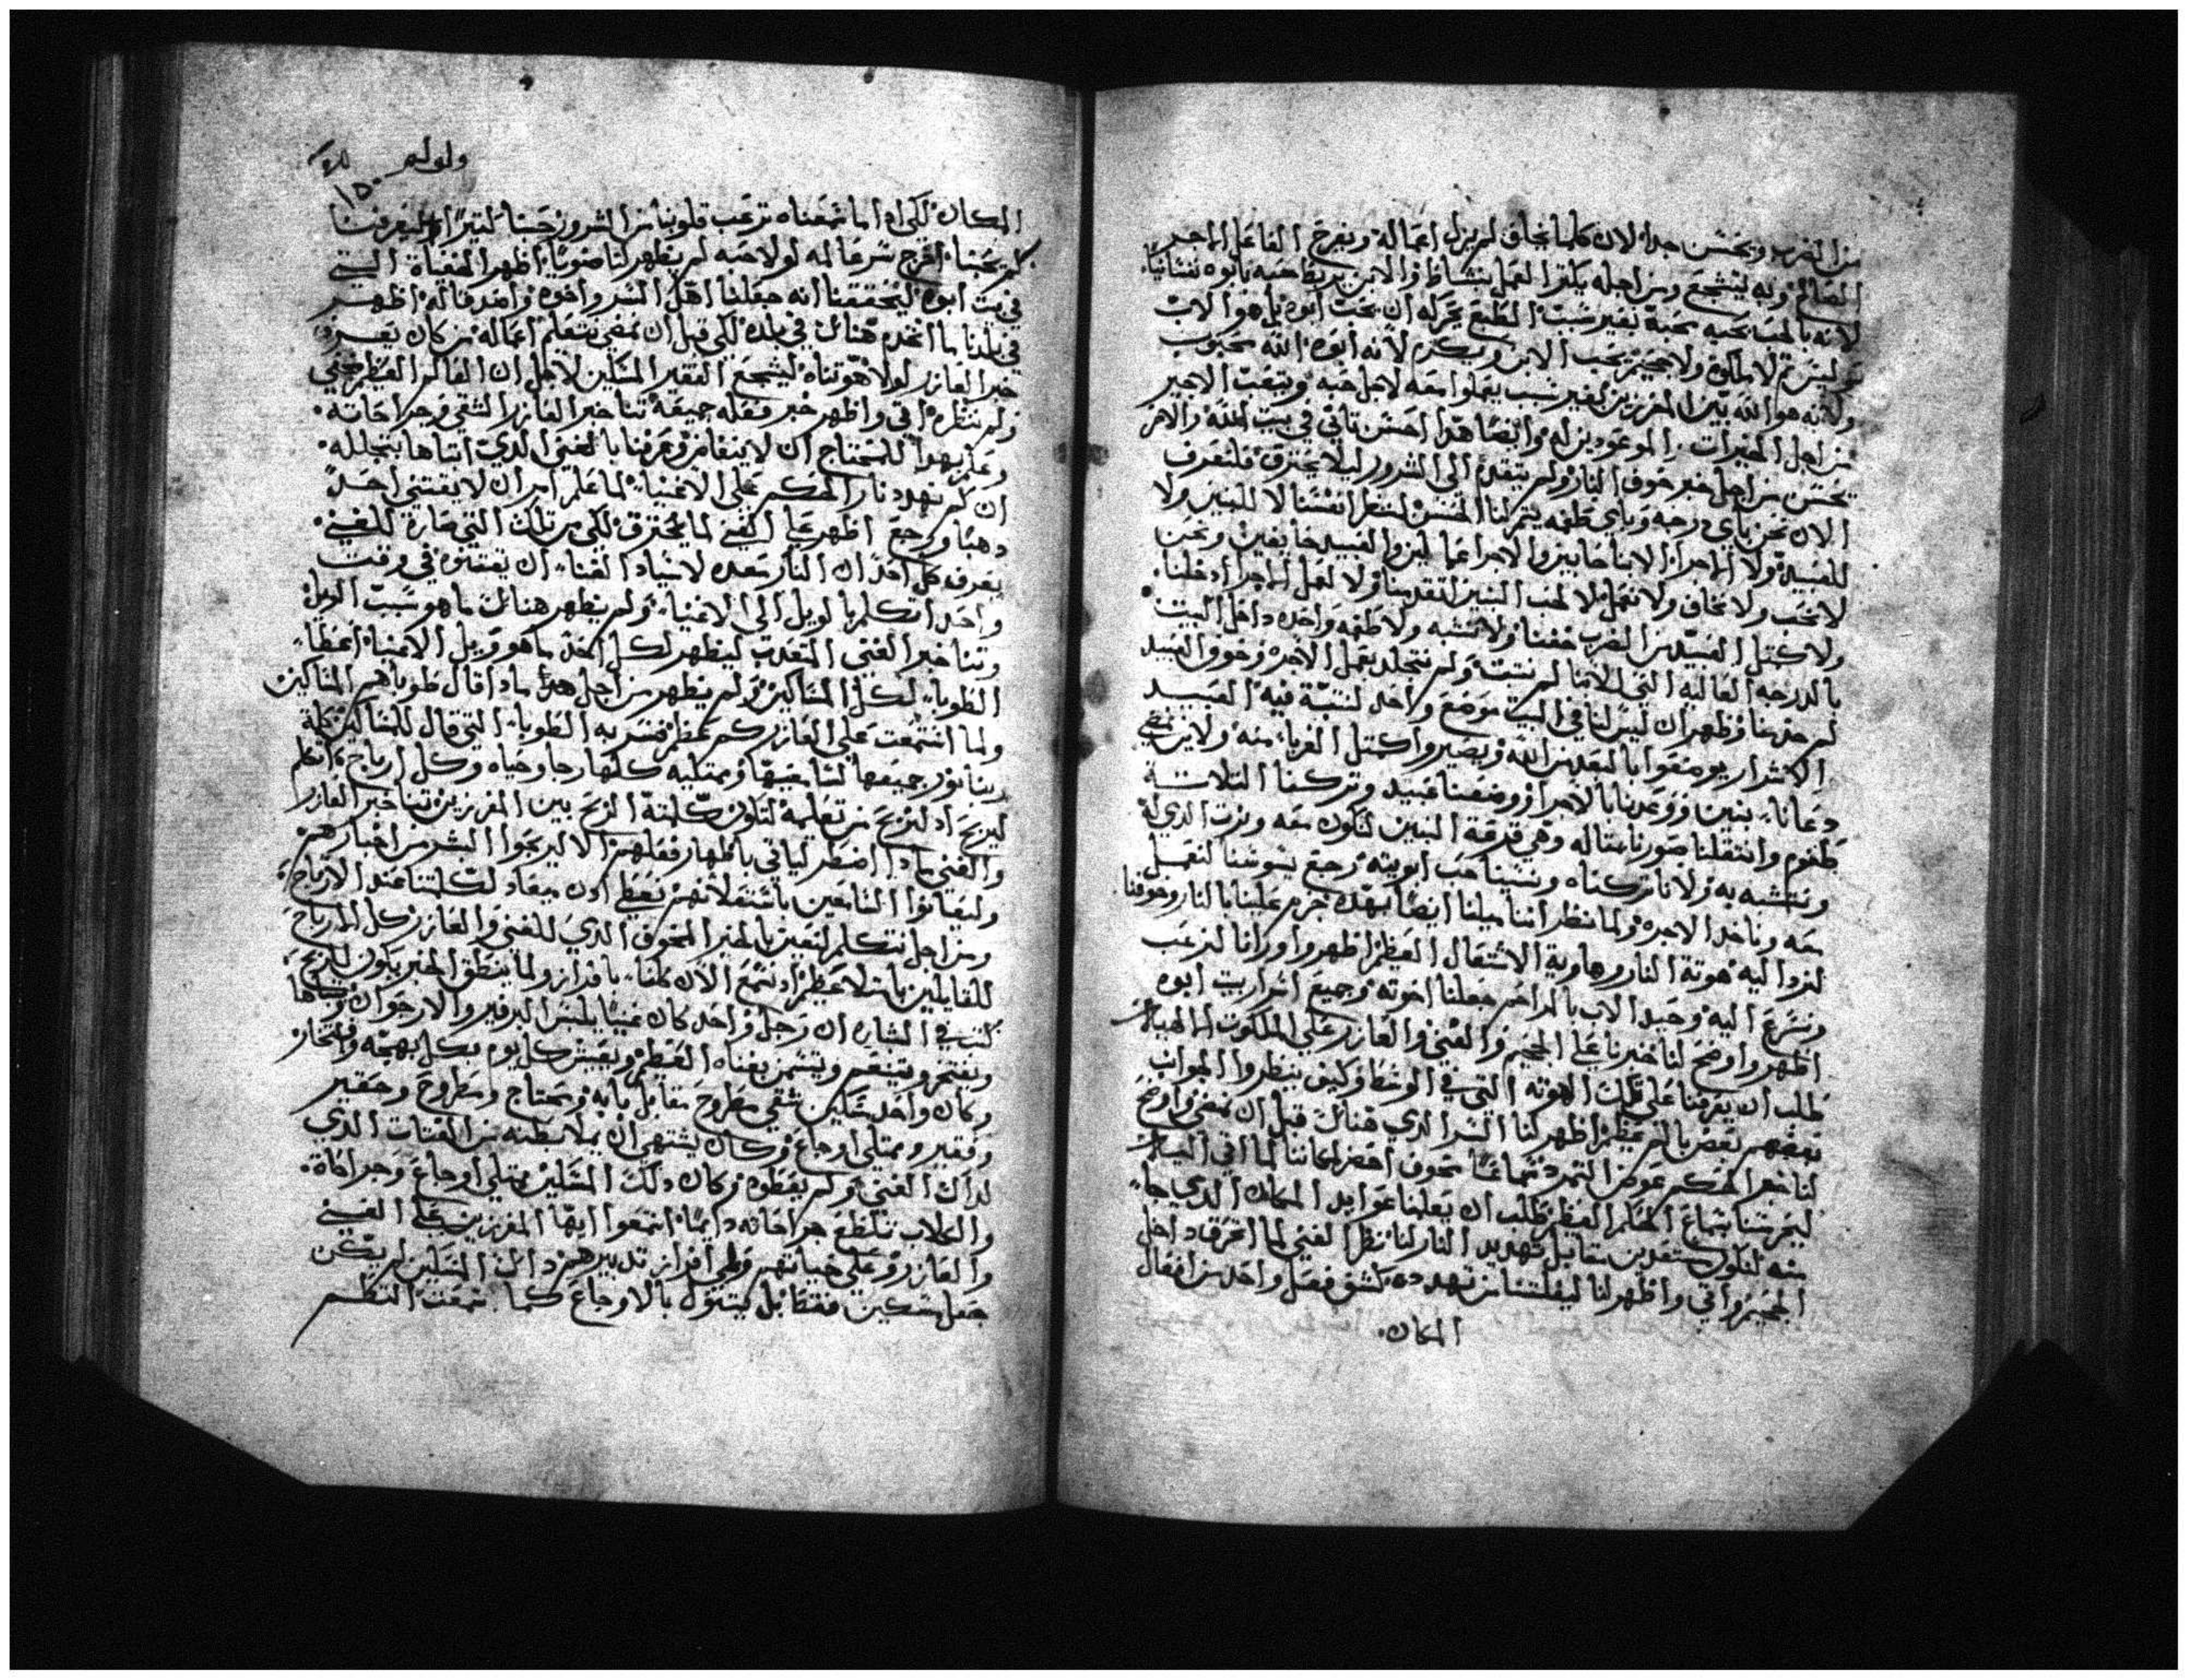 من الضرب ويحسن جدا لان كلما يخاف لم يزل اعماله ويفرح الفاعل الماجد
الصالح وبه ليتشجع ومن اجله يكثر العمل بنشاط والابن يربط حبه بابوه
لانه بالحب يحبه محبة بغير سبب الطبع يحركه ان يحب ابوه بل هو الاب
ليس لاملكوة ولا جحيم يحب الابن ويكرم لانه ابوه الله محبوب
ولانه هو الله بين المفرزين لغير سبب يعملوا معه لاجل حبه ويتعب الاجير
من اجل الخيرات الموعودين له وايضا هدا احسن ناتي في بيت الله والاخر
يحسن من اجل خوف النار ولم يتقدم الى الشرور ليلا يحترق فلنعرف
الان نحن باي درجه وباي طغمه يتم لنا الحسن لننظر انفسنا لا للبنين ولا
للعبيد ولا الماجرا الابنا حابين والاجرا عمالين والعبيد خايفين ونحن
لا نحب ولا نخاف ولا نعمل لا لحب البنين تقدمنا ولا لعمل الماجرا دخلنا
ولا كمثل العبيد من الضرب خفنا ولا نتشبه ولا طغمه واحده داخل البيت
بالدرجه العاليه التي للابنا لم نتبت ولم نتجلد بعمل الاجره وخوف العبيد
لم حد منا وظهر ان ليس لنا في البيت موضع واحد لنتبت فيه العبيد
الاشرار يومنعوا بالبعد من الله ويصيروا كمتل الغربا منه ولاين
دعانا بنين ووعدنا بالاجرا ووضعنا عبيد وتركنا التلاتة
طغوم وانتقلنا صورنا متاله وهي فرقة البنين لنكون معه ونرت الدي له
ونتشبه به ولانا تركناه ونسينا حب ابويته رجع يسوسنا لنعمل
معه وناخد الاجره ولما نظر اننا ميلنا ايضا بهده جرم علينا بالنار وخوفنا
لنزدا اليه هوتة النار وهاوية الاشتعال العظم اظهر واورانا لنرعب
ونسرع اليه وحيد الاب بالمراحم جعلنا اخوته وجميع اسرار بيت ابوه
اظهر واوضح لنا خبرنا على الجحيم والغني والعازر على الملكوت
طلب ان يعرفنا على تلك الهوته التي في الوسط وكيف ينظروا الجوانب
بعضهم بعض بالم عظم اظهر لنا السر الدي هناك قبل ان نمضي واوضح
لنا خبر الحكم عوض التمرد مخوف احضر لحاتنا لما اتي
ليحرسنا بسماع الحكم العظم طلب ان يعلمنا عوايد المكان الدي جا
منه لنكون مستعدين مقابل تهديد النار لنا نظر الغني لما احترق داخل
الجحيم واتي واظهر لنا ليفلتنا من تهدده كشف فصل واحد من افعال
المكان
ولوليه
١٥٠
المكان لكي ادا ما سمعناه ترعب قلوبنا من الشرور حبنا كتير ليعرفنا
كم يحبنا افرج شرعا له لولا حبه لم يظهر لنا ضويا اظهر المخفياة التي
في بيت ابوه ليحققنا انه جعلنا اهل السر واخوه وامد فاله اظهر
في بلدنا ما انخدم هناك في بلده لكي قبل ان نمضي نتعلم اعماله من كان يعرف
خبر العازر لولا هو تناه ليشجع الفقير المسكين لاجل ان العالم العظم مخفي
ولم ننظره اتي واظهر خبر فعله جميعه تنا خبر العازر الشقي وجراحاته
وعلم بهدا للمحتاج ان لاينغانز وعرفنا بالغني الدي اتناها بتجلله
ان كم تهدد نار الحكم على الاغنيا لما علم امر ان لا يقتني احد
دهبا ورجع اظهر على الغني لما يحترق لكي من تلك التي صارة للغني
يعرف كل احد ان النار معده لاسياد الغنا ان يقتنوه في وقت
واحد اتكلم بالويل الى الاغنيا ولم يظهر هناك ما هو سبب الويل
وتنا خبر الغني المتعدب ليظهر لكل احد ما هو ويل الاغنيا اعطا
الطوبا لكل المساكين ولم يظهر من اجل مادا قال طوباهم المساكين
ولما اتسمعت على العازر كم عظم فسر به الطوبا التي قال للمساكين كلمة
ربنا نور جميعها لسامعيها وممتليه كلها رجا وحياه وكل ارباح
ليربح ادا لنربح من تعليمه لتكون كلمته الربح بين المفرزين تنا خبر العازر
والغني مادا اضطر لياتي باظهار فعلهم الا ليربحوا البشر من اخبارهم
وليعانوا السامعين باشتغلانهم نعطي ادن ميعاد لكلمتنا عند الارباح
ومن اجل نتكلم لنعين بالخبر المخوف الدي للغني والعازر كل المرباح
للقايلين بامتلا عظم اد نسمع الان كلنا بافراز ولما ينطق الخبر يكون للربح
كتب في البشاره ان رجل واحد كان غنيا يلبس البرفير والارجوان
ويفتخر ويتنعم ويتسمن بغناه العظم ويعيش كل يوم بكل بهجه وافتخار
وكان واحد مسكين شقي مطروح مقابل بابه ومحتاج ومطروح وحقير
وفقير وممتلي اوجاع وكان يشتهي ان يملا بطنه من الفتات الدي
لداك الغني ولم يعطوه وكان دلك المسكين ممتلي اوجاع وجراحاة
والكلاب تلطع جراحاته دايما اسمعوا ايها المفرزين على الغني
والعازر وعلى حياتهم وعلى افراز تدبيرهم داك المسكين لم يكن
جعل مسكين فقط بل مبتول بالاوجاع كما سمعت التظم